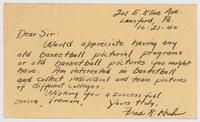 201 E. Kline Ave
Lansford, Pa.
10-21-40
Dear Sir:
Would appreciate having any
old basketball pictorial programs
or old basketball pictures you might
have. Am interested in basketball
and collect individual and team pictures
of different colleges.
Wishing you a successful
season, I remain,
Yours truly,
Fred R.